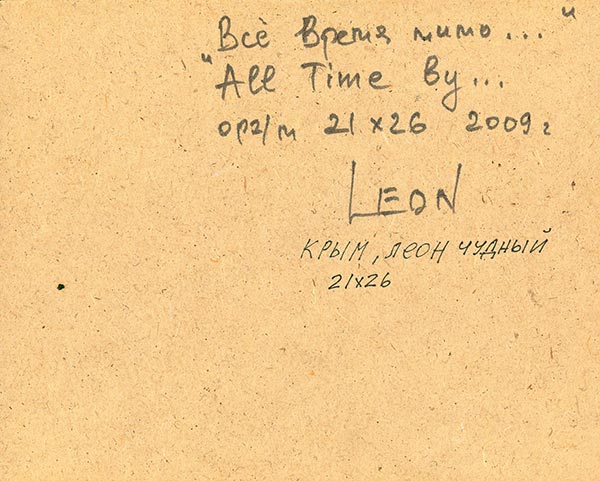 Всё Время мимо..."
"All Time By...
орг/м 21x26 2009 г
LEON
КРЫМ, ЛЕОН ЧУДНЫЙ
21x26